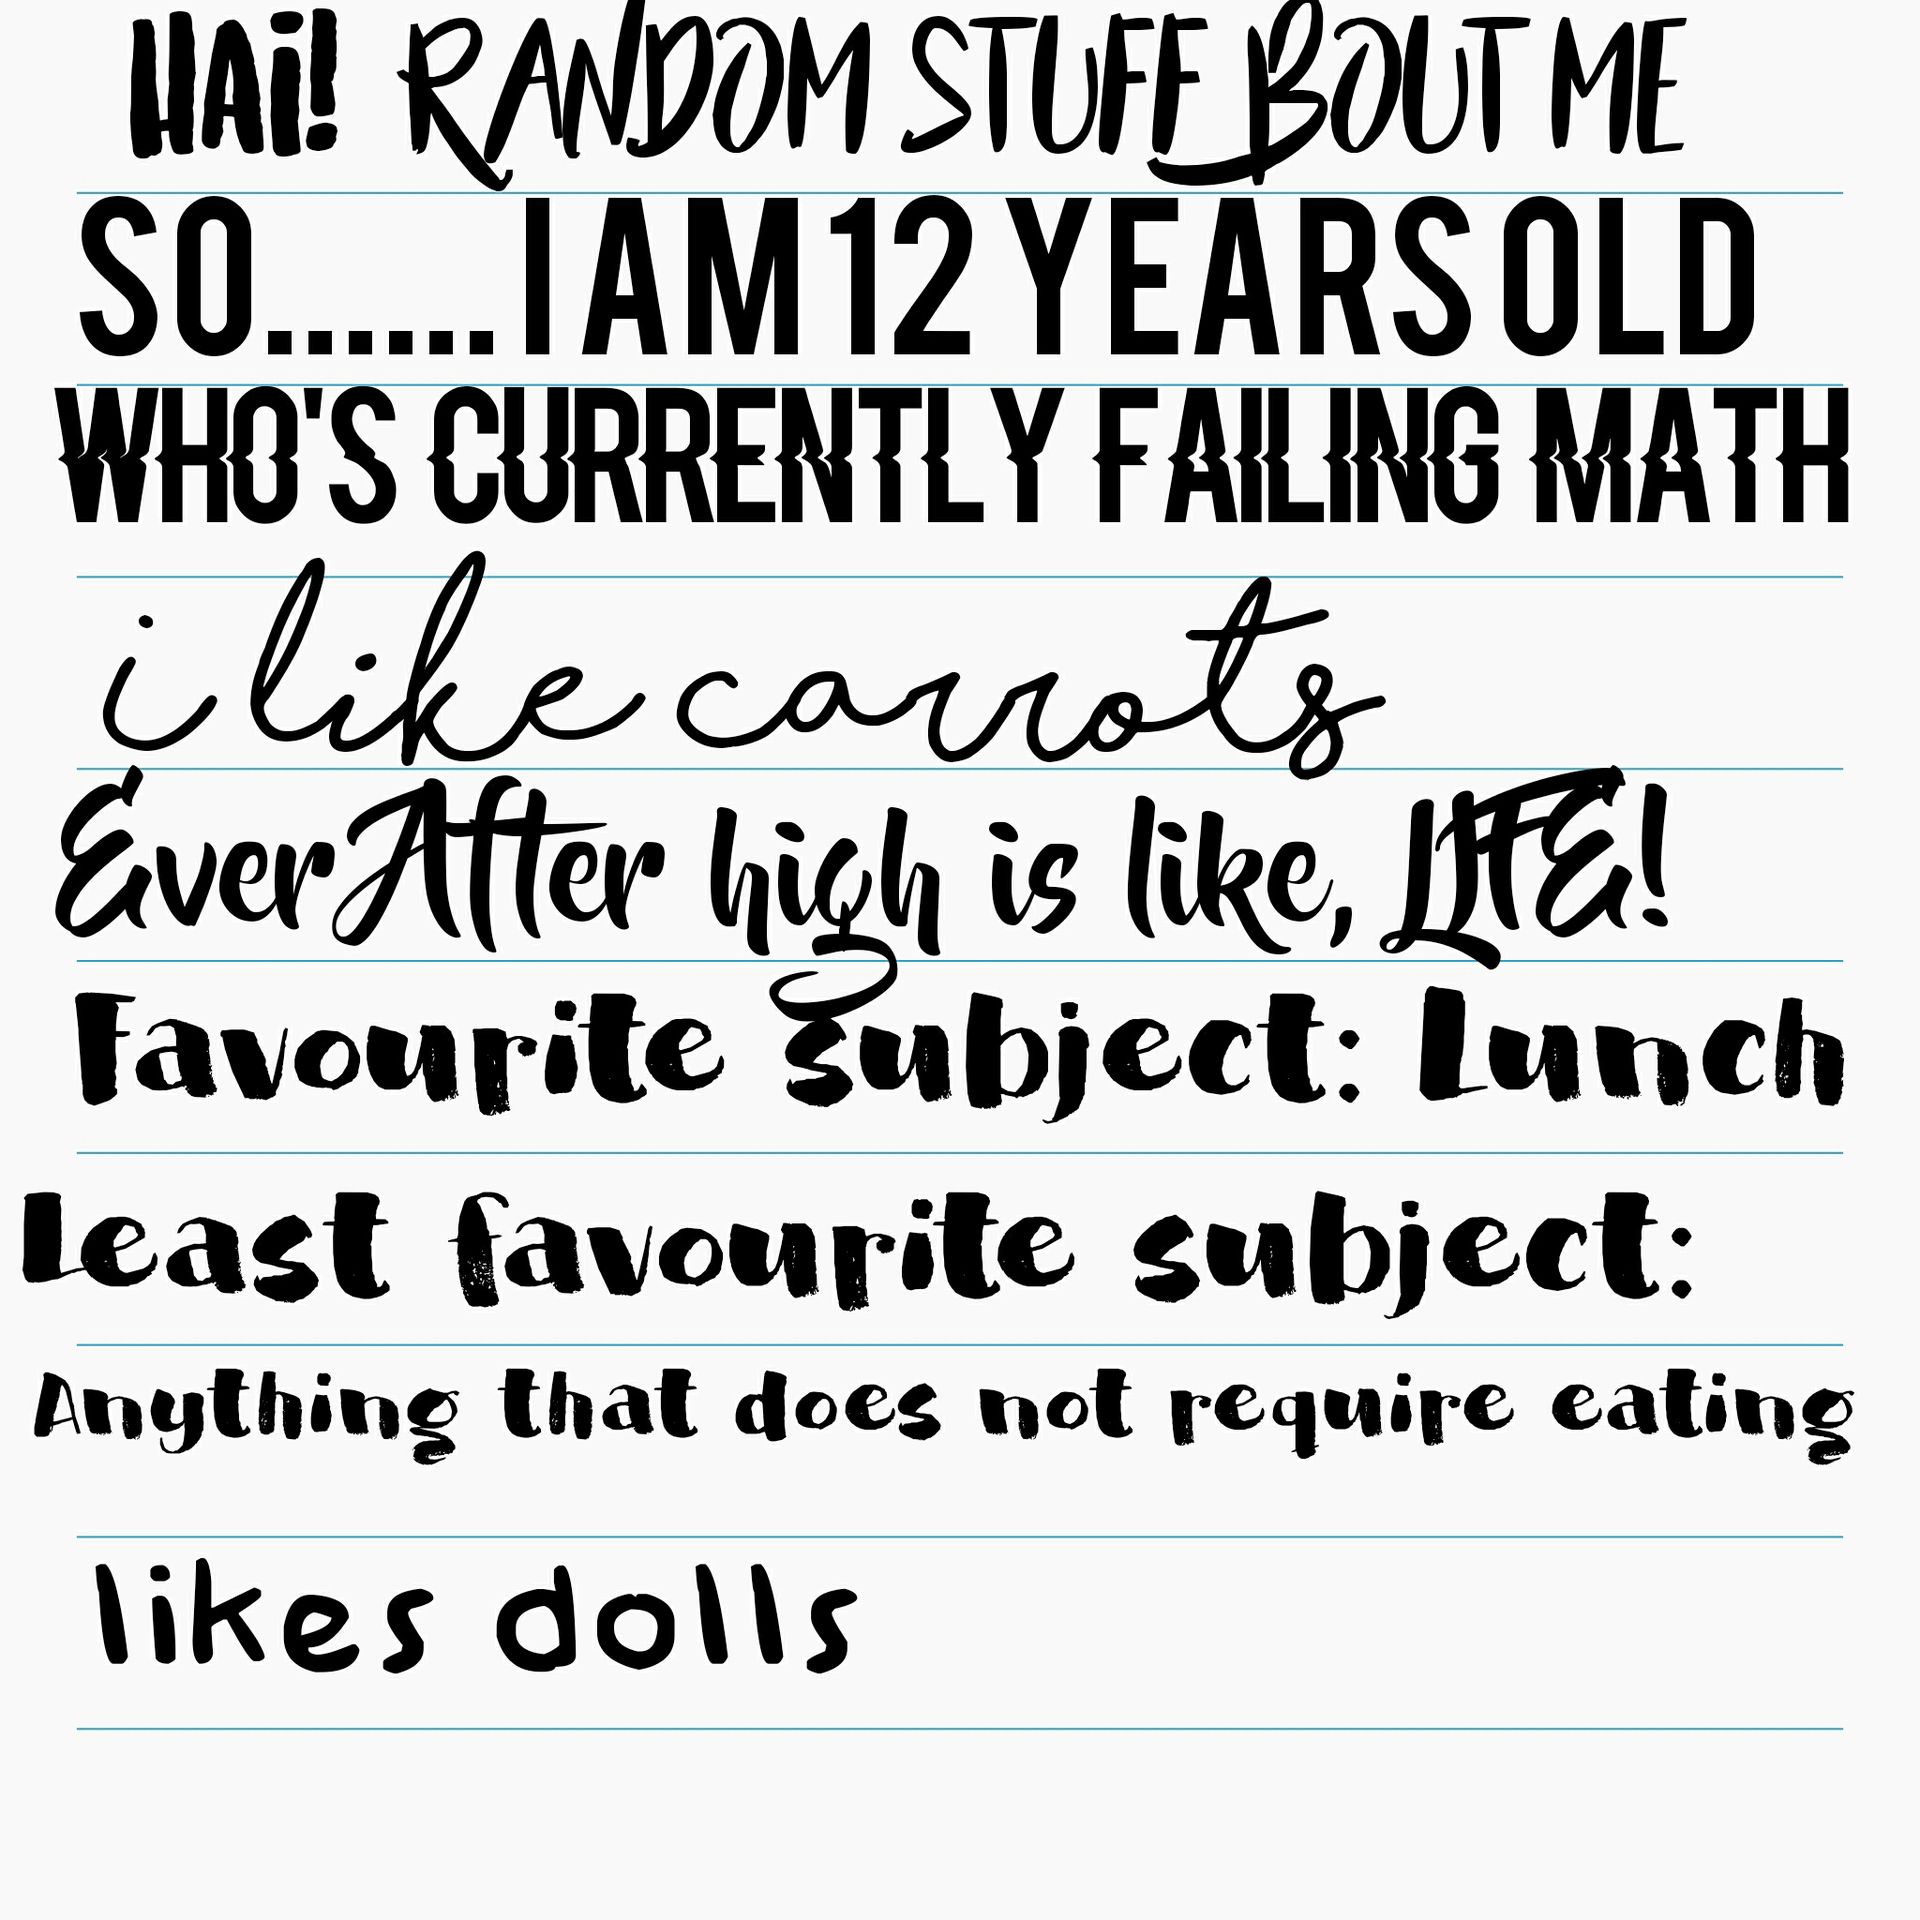 HAi! RANDOM STUFF BOUT ME
SO...... I AM 12 YEARS OLD
WHO'S CURRENTLY FAILING MATH
i like carrots
EverAfter high is like, LIFE!
Favourite Subject: Lunch
Least favourite subject:
Anything that does not require eating
likes dolls